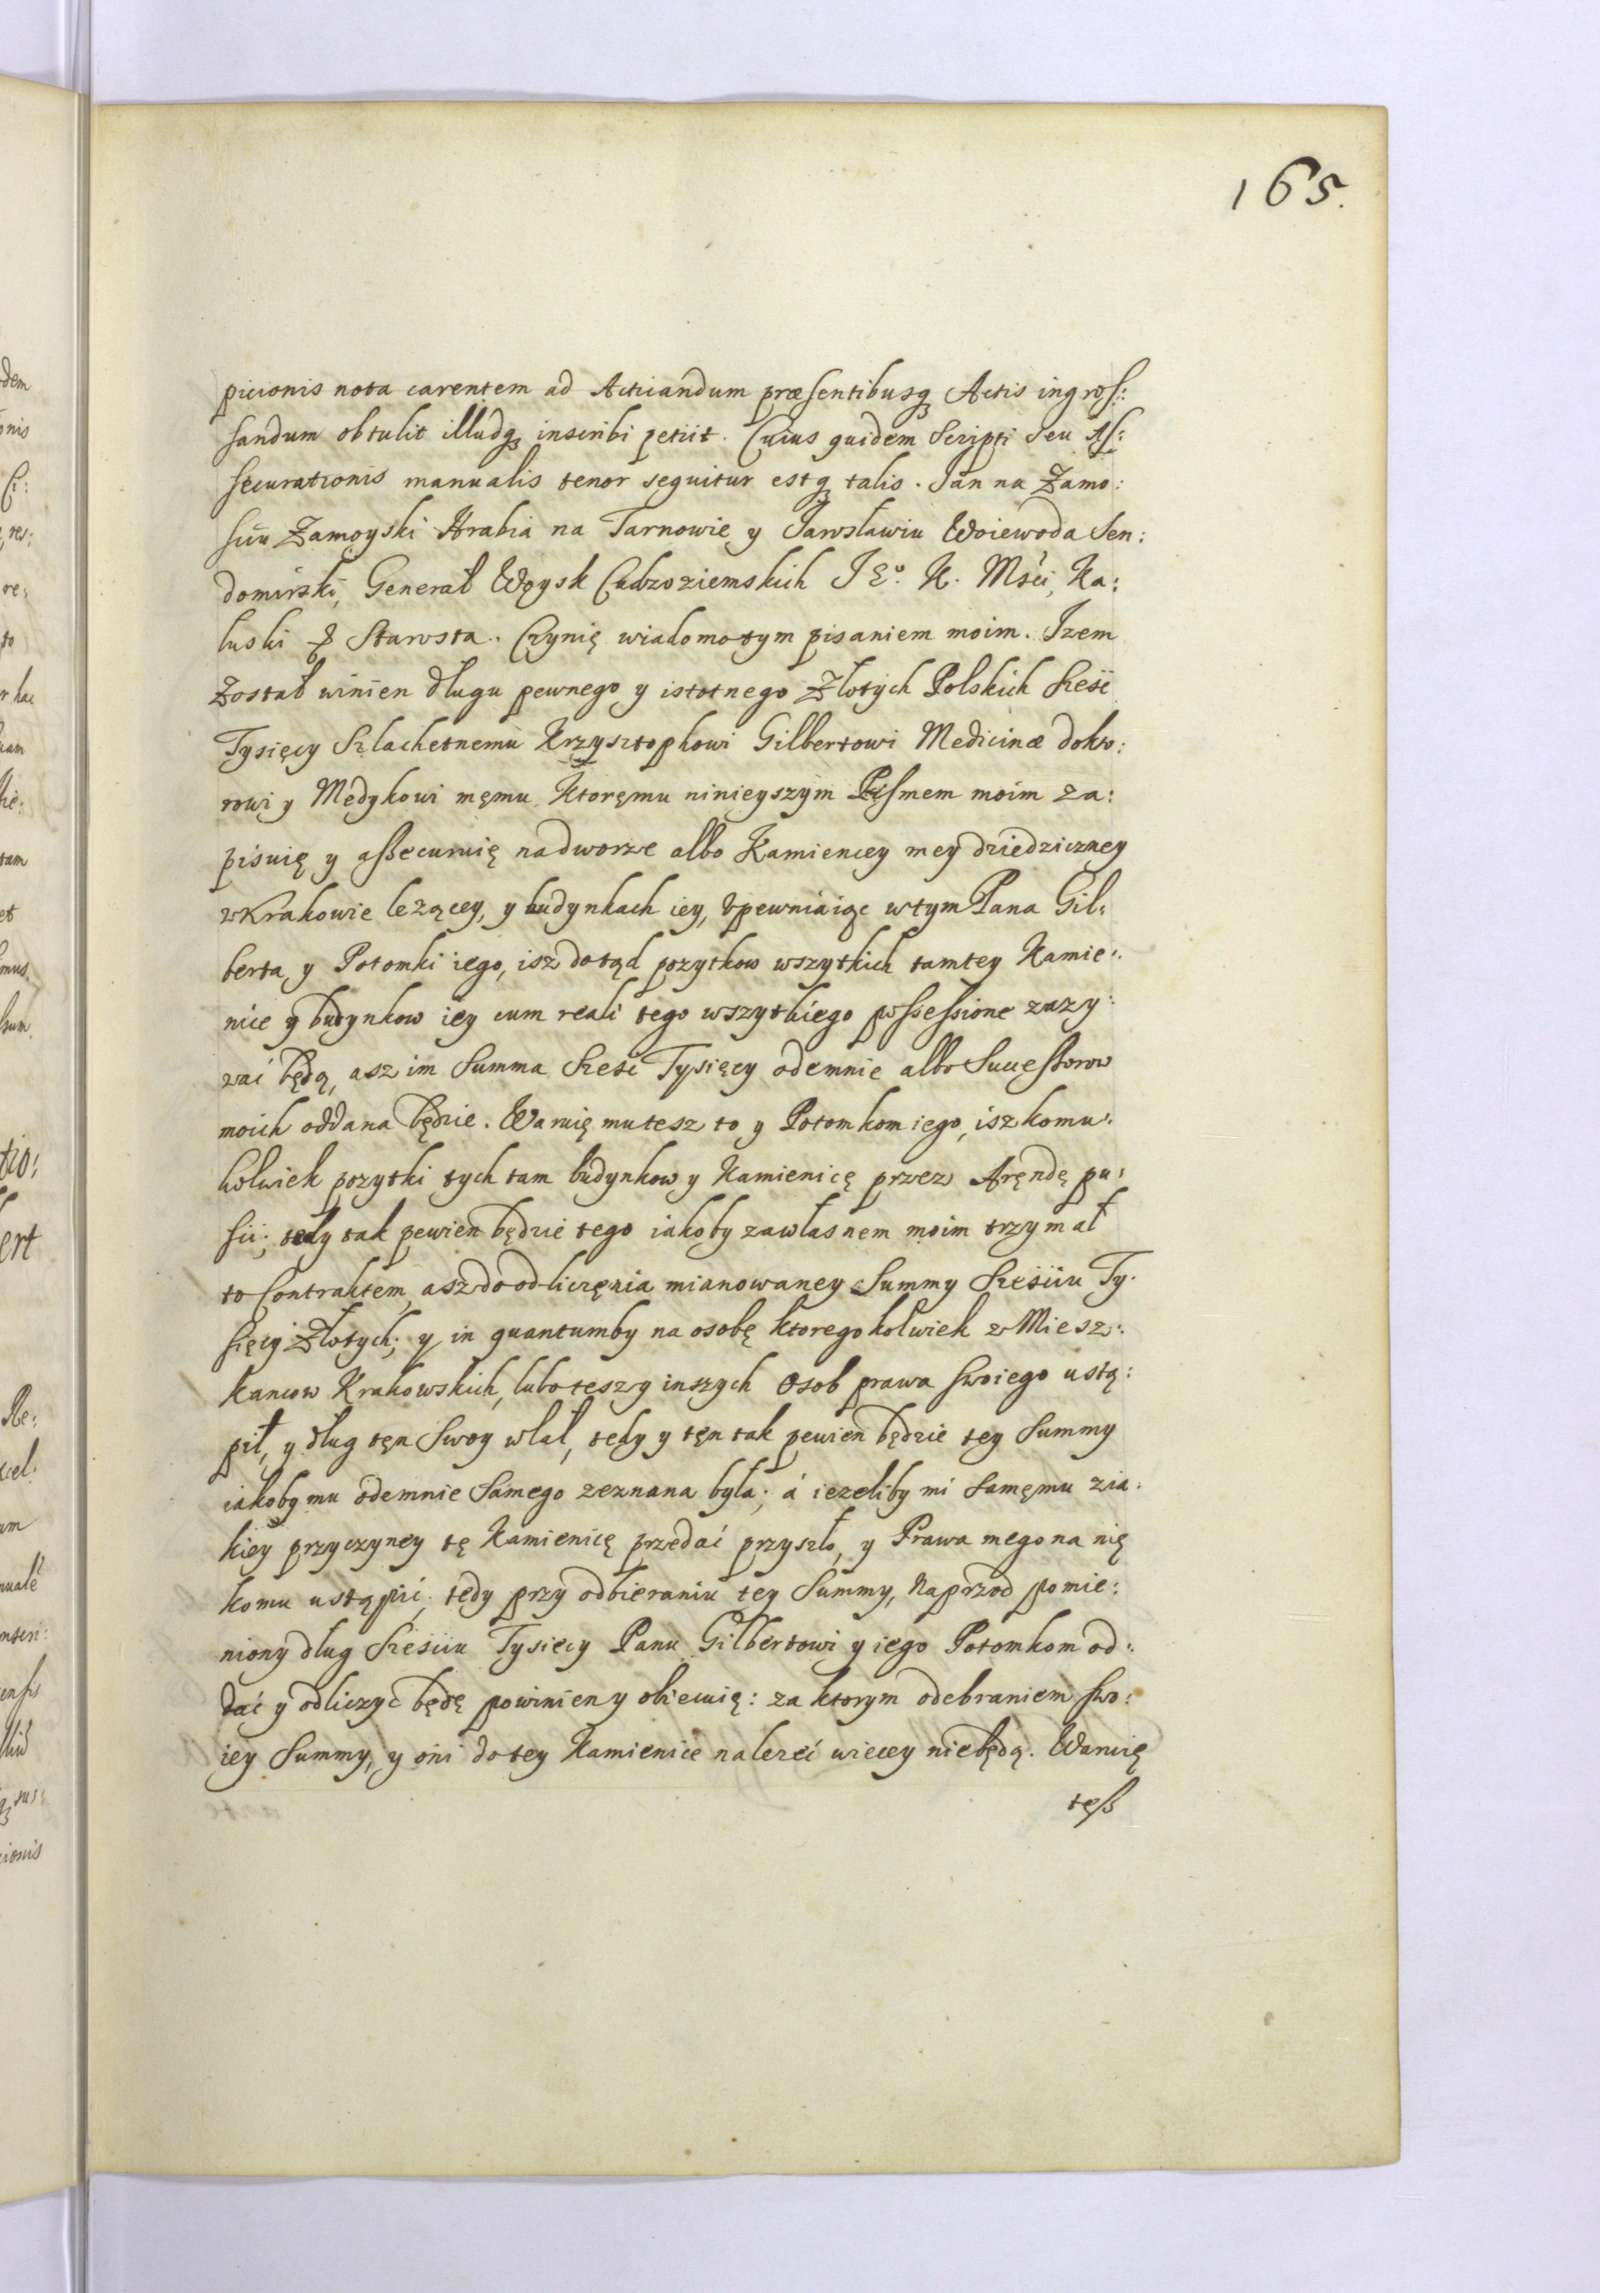 165.
picionis nota carentem ad Acticandum præsentibusq Actis ingros:
sandum obtulit illudq inscribi petiit. Cuius quidem Scripti seu As:
securationis manualis tenor sequitur estq talis. Jan na Zamo:
sciu Zamoyski Hrabia na Tarnowie y Jarosławiu Woiewoda Sen:
domirski, Generał Woysk Cudzoziemskich J Eº. K. Mści, Ka:
łuski & Starosta. Czynię wiadomo tym pisaniem moim. Izem
Został winien długu pewnego y istotnego Złotych Polskich sześć
Tysięcy Szlachetnemu Krzysztophowi Gilbertowi Medicinæ dokto:
rowi y Medykowi męmu Ktoręmu ninieyszym Pismem moim za:
pisuię y assecuruię na dworze albo Kamiencey mey dziedziczney
w Krakowie lezącey, y budynkach iey, Upewniaiąc w tym Pana Gil:
berta, y Potomki iego, isz dotąd pozytkow wszytkich tamtey Kamie:
nice y budynkow iey cum reali tego wszytkiego possessione zazy:
wać będą, asz im Summa Sześć Tysięcy odemnie albo Successorow
moich oddana będzie. Waruię mu tesz to y Potomkom iego, isz komu:
kolwiek pozytki tych tam budynkow y Kamienicę przez Aręndę pu:
sci; tedy tak pewien będzie tego iakoby za własnem moim trzymał
to Contraktem, asz do odliczęnia mianowaney Summy Sześciu Ty:
sięcy Złotych; y in quantumby na osobę ktoregokolwiek z Miesz:
kancow Krakowskich, lubo tesz y inszych Osob prawa swoiego ustą:
pił, y dług tęn Swoy wlał, tedy y tęn tak pewien będzie tey Summy
iakoby mu odemnie Samego zeznana była; á iezeliby mi Samęmu z ia:
kiey przyczyney tę Kamienicę przedać przyszło, y Prawa mego na nię
komu ustąpić; tedy przy odbieraniu tey Summy, Naprzod pomie:
niony dług Sześciu Tysięcy Panu Gilbertowi y iego Potomkom od:
dać y odliczyć będę powinien y obiecuię: za ktorym odebraniem swo:
iey Summy, y oni do tey Kamienice nalezeć wiecey niebędą. Waruię
tęsz